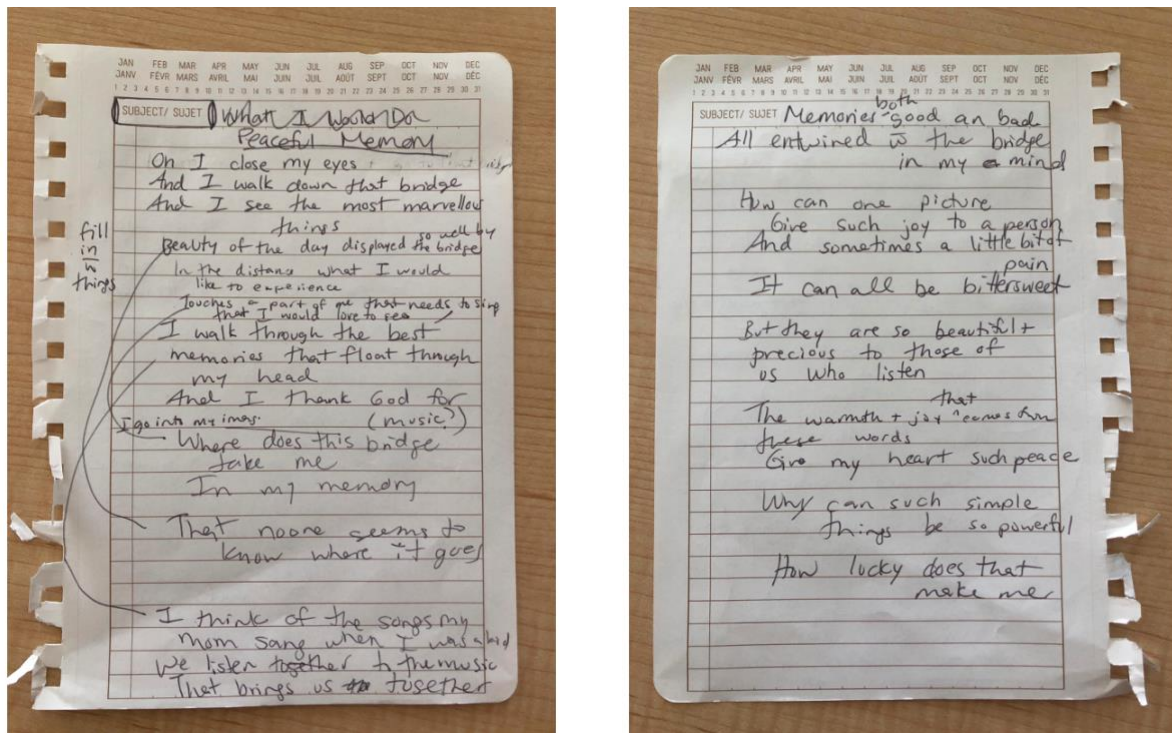 JAN FEB MAR APR MAY JUN JUL AUG SEP OCT NOV DEC
JANV FÉVR MARS AVRIL MAI JUIN JUIL AOÛT SEPT OCT NOV DÉC
1 2 3 4 5 6 7 8 9 10 11 12 13 14 15 16 17 18 19 20 21 22 23 24 25 26 27 28 29 30 31
SUBJECT/ SUJET What I Would Do
Peaceful Memory
On I close my eyes
And I walk down that bridge
And I see the most marvellous
things
so well by
Beauty of the day displayed the bridge
fill
in
things
In the distance what I would
like to experience
Touches a part of me that needs to sing
that I would love to see
I walk through the best
memories that float through
my head
And I thank God for
(music?)
I go into my imag.
Where does this bridge
take me
In my memory
That noone seems to
know where it goes
I think of the songs my
mom sang when I was a kid
We listen together to the music
That brings us together
JAN FEB MAR APR MAY JUN JUL AUG SEP OCT NOV DEC
JANV FÉVR MARS AVRIL MAI JUIN JUIL AOÛT SEPT OCT NOV DÉC
1 2 3 4 5 6 7 8 9 10 11 12 13 14 15 16 17 18 19 20 21 22 23 24 25 26 27 28 29 30 31
both
SUBJECT/ SUJET Memories good an bad
All entwined the bridge
in my mind
How can one picture
Give such joy to a person
And sometimes a little bit of
pain
It can all be bittersweet
But they are so beautiful +
precious to those of
us who listen
that
The warmth + joy comes from
these words
Give my heart such peace
Why can such simple
things be so powerful
How lucky does that
make me